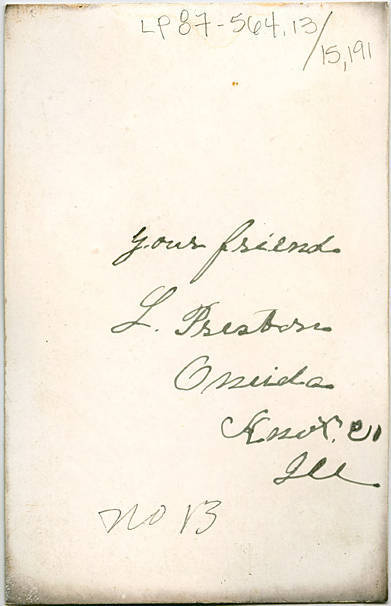 LP87-564.13/
15,191
your friend
L. Preston
Oneida
Knox. co
Ill
no 13